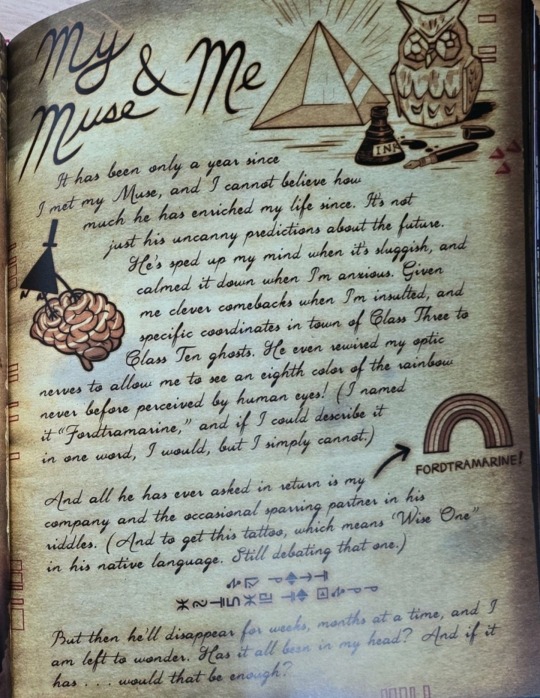 My
Muse & Me
INK
It has been only a year since
I met my Muse, and I cannot believe how
much he has enriched my life since. It's not
just his uncanny predictions about the future.
He's sped up my mind when it's sluggish, and
calmed it down when I'm anxious. Given
me clever comebacks when I'm insulted, and
specific coordinates in town of Class Three to
Class Ten ghosts. He even rewired my optic
nerves to allow me to see an eighth color of the rainbow
never before perceived by human eyes! (I named
it “Fordtramarine,” and if I could describe it
in one word, I would, but I simply cannot.)
FORDTRAMARINE!
And all he has ever asked in return is my
company and the occasional sparring partner in his
riddles. (And to get this tattoo, which means “Wise One”
in his native language. Still debating that one.)
But then he'll disappear for weeks, months at a time, and I
am left to wonder. Has it all been in my head? And if it
has . . . would that be enough?